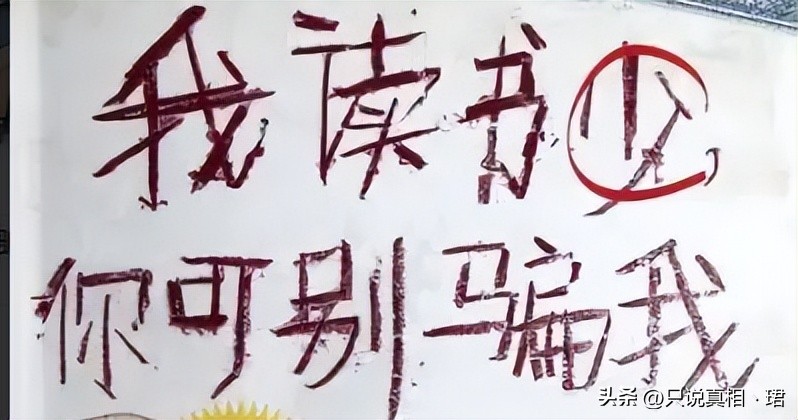 我读书少
你可别骗我
头条 @只说真相·珺